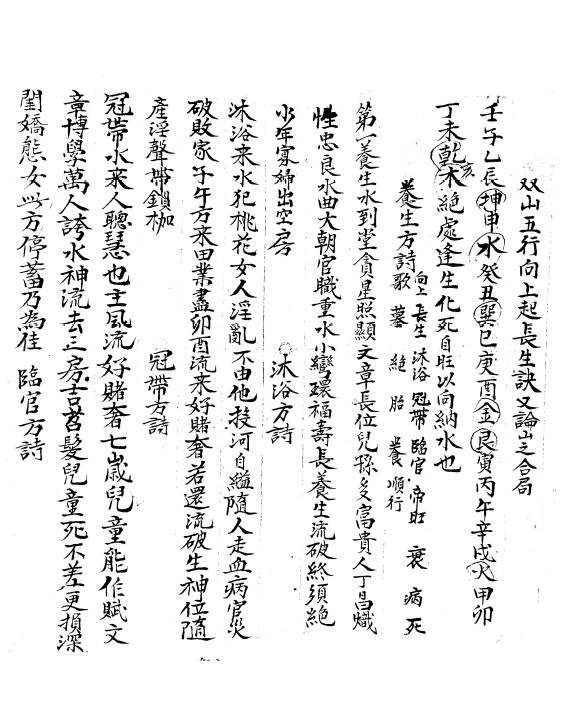 双山五行向上起長生訣又論山之合局
壬子乙辰坤申水癸丑巽巳庚酉金艮寅丙午辛戌火甲卯
丁未乾亥木絕處逢生化死自旺以向納水也
養生方詩歌 向上 長生 沐浴 冠帶 臨官 帝旺 衰 病 死
墓 絕 胎 養 順行
第一養生水到堂貪星照顯文章長位兒孫多富貴人丁昌熾
性忠良水曲大朝官職重水小灣環福壽長養生流破終須絕
少年寡婦出空房 沐浴方詩
沐浴来水犯桃花女人淫亂不由他投河自縊隨人走血病官災
破敗家子午方来田業盡卯酉流来好賭奢若還流破生神位隨
產淫聲帶鎖枷 冠帶方詩
冠帶水来人聰慧也主風流好賭奢七歲兒童能作賦文
章博學萬人誇水神流去三房吉苕髮兒童死不差更損深
閨嬌態女此方停蓄乃為佳 臨官方詩